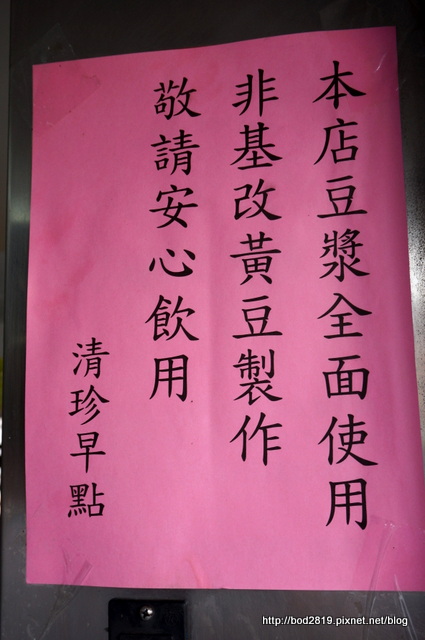 本店豆漿全面使用
非基改黃豆製作
敬請安心飲用
清珍早點
http://bod2819.pixnet.net/blog